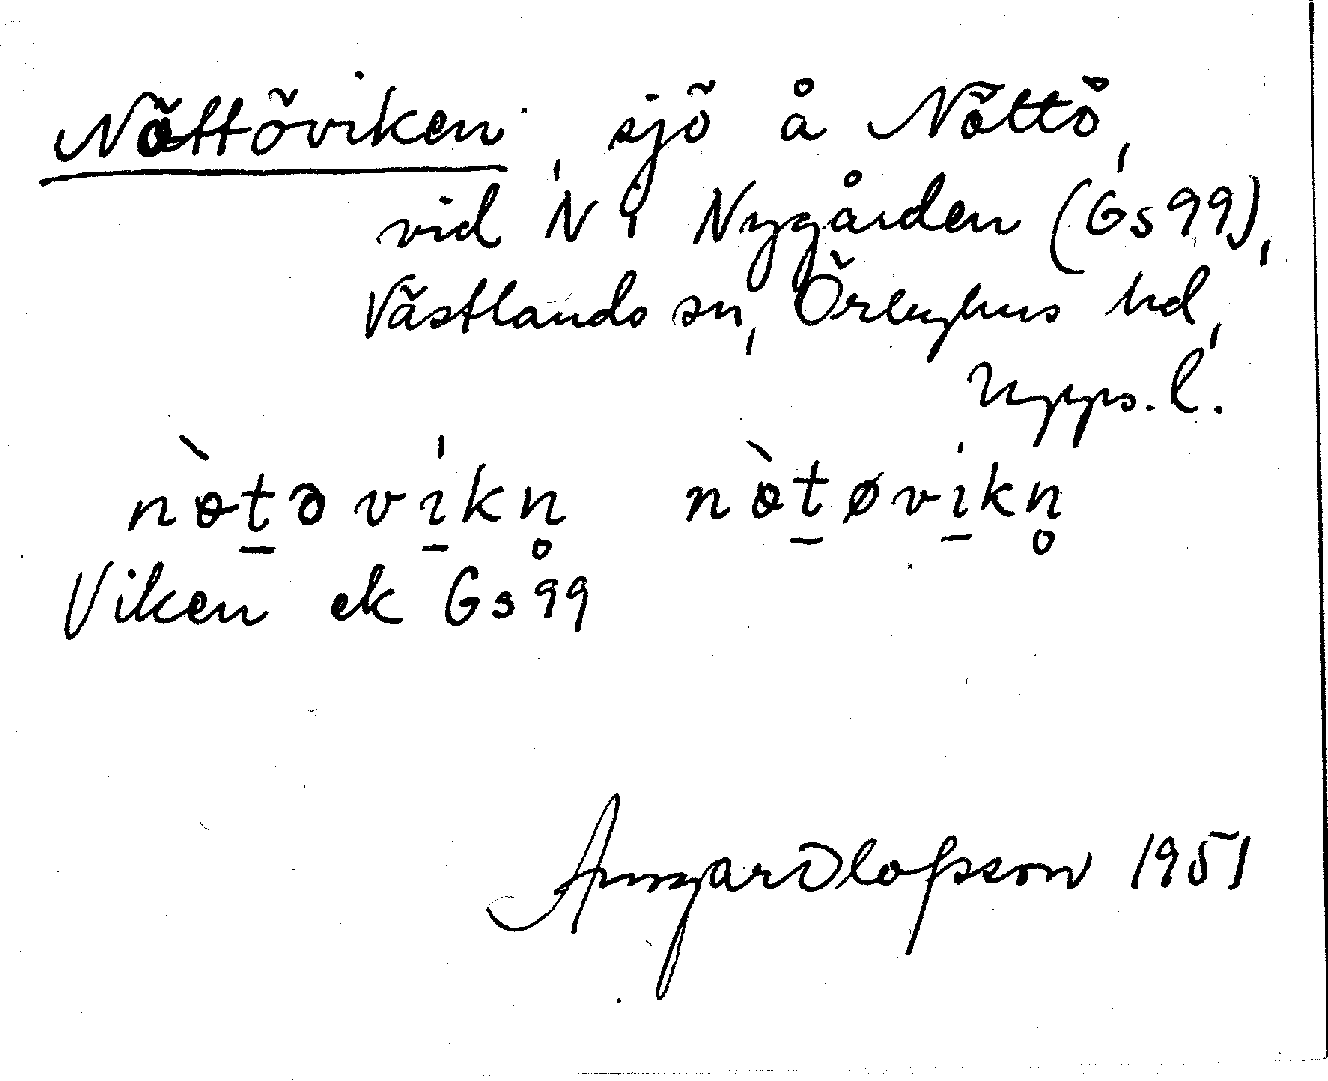 Nöttöviken, sjö å Nöttö,
vid N i Nygården (Gs 99),
Västlands sn, Örbyhus hd,
Upps. l.
nø̀t̠əvi̠kn̥ nø̀t̠øvi̠kn̥
Viken ek Gs 99
Olofsson 1951